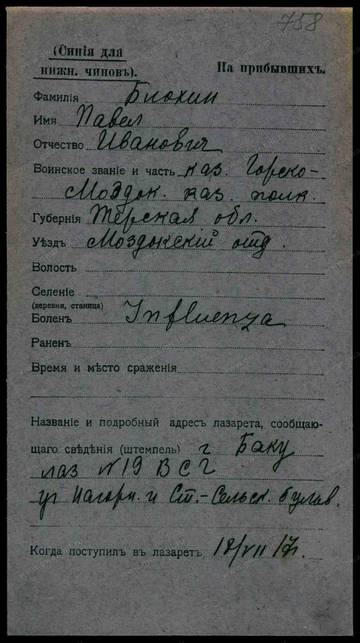 758
(Синія для
нижн. чиновъ).
На прибывшихъ.
Фамилія Блохин
Имя Павел
Отчество Иванович
Воинское званіе и часть каз. Горско-
Моздок. каз. полк.
Губернія Терская обл.
Уѣздъ Моздокский отд.
Волость
Селеніе
(деревня, станица)
Боленъ Influenza
Раненъ
Время и мѣсто сраженія
Названіе и подробный адресъ лазарета, сообщаю-
щаго свѣдѣнія (штемпель) г Баку
лаз N 19 ВСГ
уг Нагорн. и Ст.-Сельск. булив.
Когда поступилъ въ лазаретъ 18/VII 17г.